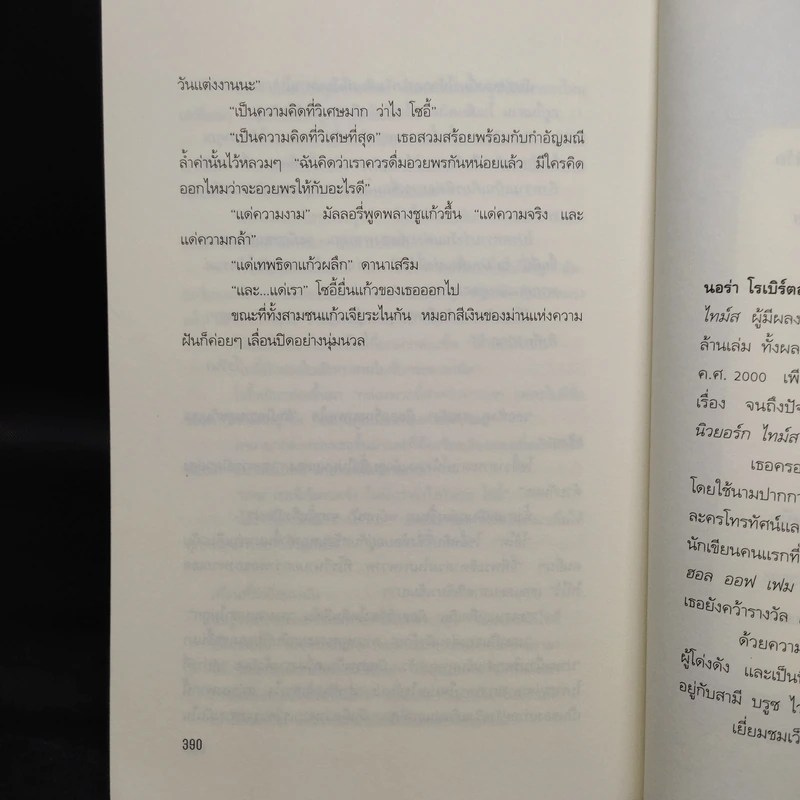 วันแต่งงานนะ"
"เป็นความคิดที่วิเศษมาก ว่าไง โซอี้"
"เป็นความคิดที่วิเศษที่สุด" เธอสวมสร้อยพร้อมกับกำอัญมณี
ล้ำค่านั้นไว้หลวมๆ "ฉันคิดว่าเราควรดื่มอวยพรกันหน่อยแล้ว มีใครคิด
ออกไหมว่าจะอวยพรให้กับอะไรดี"
"แด่ความงาม" มัลลอรี่พูดพลางชูแก้วขึ้น "แด่ความจริง และ
แด่ความกล้า"
"แด่เทพธิดาแก้วผลึก" ดานาเสริม
"และ...แด่เรา" โซอี้ยื่นแก้วของเธอออกไป
ขณะที่ทั้งสามชนแก้วเจียระไนกัน หมอกสีเงินของม่านแห่งความ
ฝันก็ค่อยๆ เลื่อนปิดอย่างนุ่มนวล
390
นอร่า โรเบิร์ตส
ไทม์ส ผู้มีผลง
ล้านเล่ม ทั้งผล
ค.ศ. 2000 เพี
เรื่อง จนถึงปัจ
นิวยอร์ก ไทม์ส
เธอครอ
โดยใช้นามปากกา
ละครโทรทัศน์แล
นักเขียนคนแรกที่
ฮอล ออฟ เฟม
เธอยังคว้ารางวัล
ด้วยความ
ผู้โด่งดัง และเป็นที่
อยู่กับสามี บรูซ ไว
เยี่ยมชมเว็